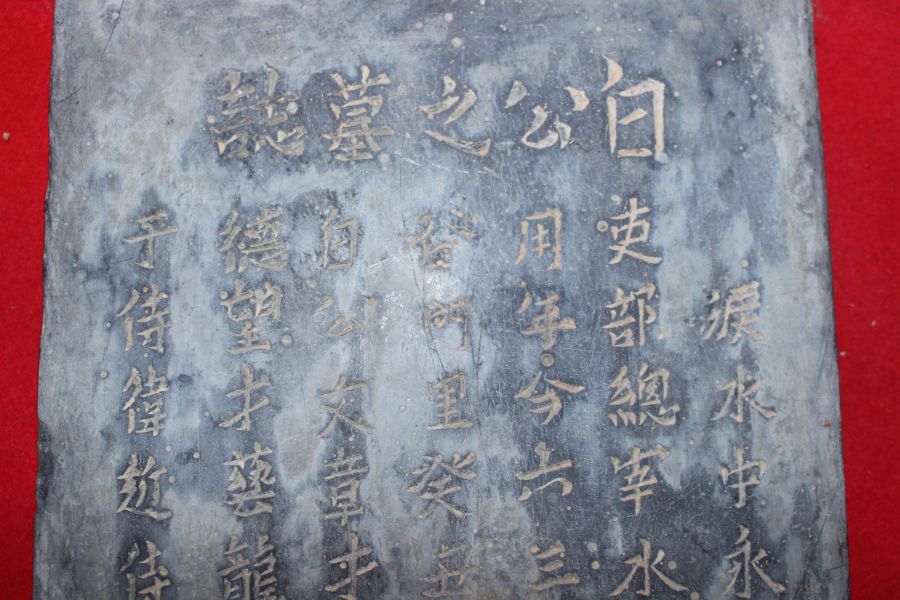 白公之墓誌
淚水中永
吏部總宰水
用年今六三
門里癸丑
白公文章才
德望才藝龍
于侍偉近侍